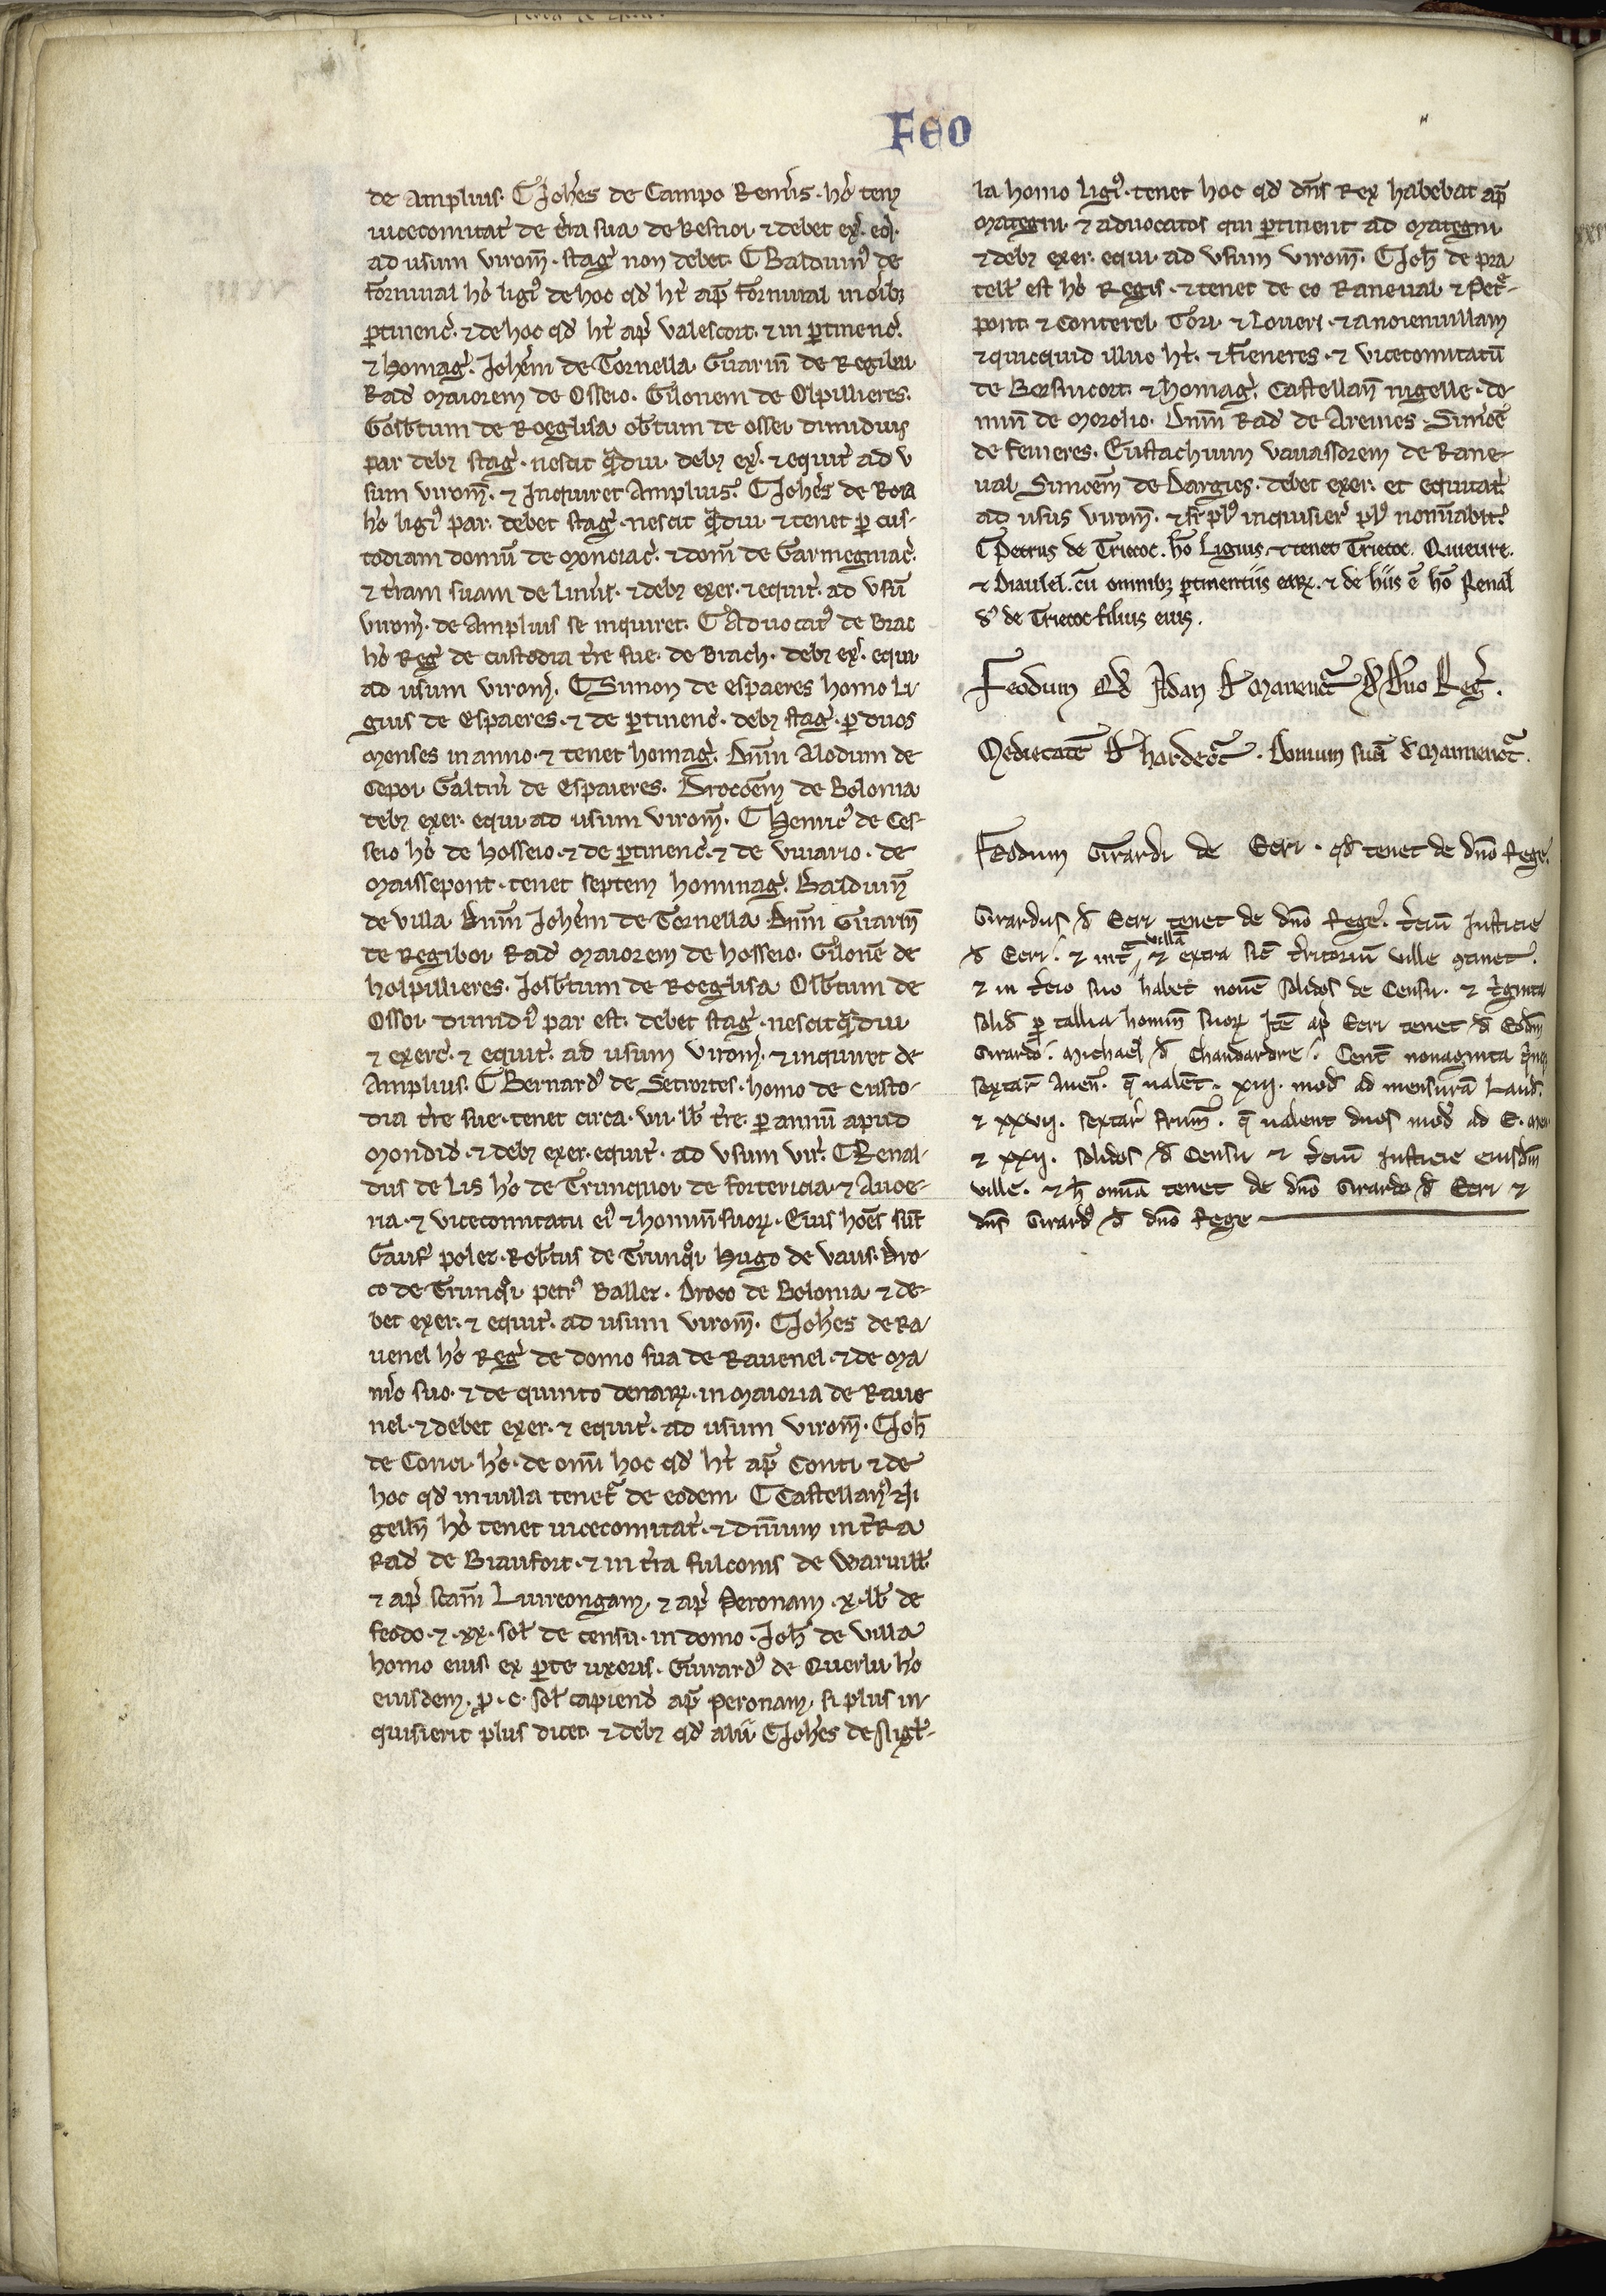 Feo
de Amplius. ⁋ Joħes de Campo Remis. hō teneɫ
uicecomitat̉ de t̉ra sua de Restior ⁊ debet ex̉. eq̉.
ad usum virom̄. stag̉ non debet. ⁋ Balduin⁹ de
fornival hō lig⁹ de hoc qd̉ ht̉ ap̄ fornival in oībꝫ
ꝑtinenc̉. ⁊ de hoc qd̉ ht̉ ap̉ Valescort. ⁊ in ꝑtinenc̉.
⁊ homag̉. Joħem de Tornella. Guarin̄ de Regibu
Rad̉ maiorem de Osseio. Gilonem de Olpillieres.
Gosb̉tum de Roeglisa obtum de ossei dimidius
par debꝫ stag̉. nescit q̄diu. debꝫ ex̉. ⁊ equit̉ ad v
sum virom̄. ⁊ Inquiret Amplius. ⁋ Joħes de Roia
hō lig⁹ par. debet stag̉. nescit q̄diu ⁊ tenet ꝑ cus-
todiam domū de Moneiac̉. ⁊ dom̄ de Garmegniac̉.
⁊ t̉ram suam de Liniis. ⁊ debꝫ exer. ⁊ equit̉. ad Vsū
virom̉. de Amplius se inquiret. ⁋ Aduocat⁹ de Brac
hō Reg̉ de custodia t̉re sue. de Briach. debꝫ ex̉. equi
ad usum virom̉. ⁋ Simon de espaeres homo li-
gius de Espaeres. ⁊ de ꝑtinenc̉. debꝫ stag̉. ꝑ duos
menses in anno. ⁊ tenet homag̉. Dn̄m Alodum de
Cepoi. Galt̉ri de Espaieres. Drocoēm de Bolonia
debꝫ exer. equi ad usum virom̄. ⁋ Henric⁹ de Ces-
seio hō de hosseio. ⁊ de ꝑtinenc̉. ⁊ de viuario. de
Maissepont. tenet septem hominag̉. Balduin̄
de villa Dn̄m Joħem de Tornella. Dn̄m Guarin̄
de Regiboi Rad̉ Maiorem de hosseio. Gilonē de
holpillieres. Josb̉tum de Roeglisa Osb̉tum de
Ossoi dimidi⁹ par est. debet stag̉. nescit q̄diu
⁊ exerc̉. ⁊ equit̉. ad usum virom̉. ⁊ inquiret de
Amplius. ⁋ Bernard⁹ de Setrortes. homo de custo-
dia t̉re sue. tenet circa. vii. lb̄ t̉re. ꝑ annū apud
Mondid̉. ⁊ debꝫ exer. equit̉. ad Vsum vir̉. ⁋ Renal-
dus de Lis hō de Trunquoi de fortericia. ⁊ Auoe-
na. ⁊ vicecomitatu ei⁹ ⁊ homin̄ suoꝝ. Eius hoēs sūt
Gauf̉ poler. Rob̉tus de Trunqͦi hugo de Vaus. Dro-
co de Trunqͦi petr⁹ Baller. Droco de Bolonia ⁊ de-
bet exer. ⁊ equit̉. ad usum virom̄. ⁋ Joħes de Ra-
uenel hō Reg̉ de domo sua de Rauenel. ⁊ de Ma-
nio suo. ⁊ de quinto denarꝝ. in Maioria de Raue
nel. ⁊ debet exer. ⁊ equit̉. ad usum virom̄. ⁋ Joħ
de Conci. hō. de omī hoc qd̉ ht̉ ap̄ Conti. ⁊ de
hoc qd̉ in uilla tenet̄ de eodem. ⁋ Castellan⁹ Ni
gell̄ hō tenet uicecomitat̉. ⁊ dn̄ium in t̉Ra
Rad̉ de Biaufort. ⁊ in t̉ra fulconis de Waruill̉.
⁊ ap̉ scām Liureongam, ⁊ ap̉ Peronam. x. lb̄ de
feodo. ⁊. xx. sol̉ de censu. in domo. Joħ de Villa
homo eius ex ꝑte uxoris. Guirard⁹ de Querlu hō
eiusdem, ꝓ. c. sol̉ capiend̉ ap̄ Peronam, si plus in-
quisierit plus dicet. ⁊ debꝫ qd̉ alii ⁋ Joħes de Nigl̉-
la homo lig⁹. tenet hoc qd̉ dn̄s Rex habebat ap̄
Mategni. ⁊ aduocatos qui ꝑtinent ad Mategni
⁊ debꝫ exer. equi. ad Vsum virom̄. ⁋ Joħ de pra
tell̉ est hō Regis. ⁊ tenet de eo Raneual ⁊ Petͣ-
pont. ⁊ Conterel. Tori. ⁊ Loueri. ⁊ Anoienuillam
⁊ quicquid illuc ht̉. ⁊ Fieneres. ⁊ vicecomitatū
de Bersincort. ⁊ homag̉. Castellan̄ nigelle. do-
min̄ de Morolio. Dn̄m Rad̉ de Areines. Simoē
de femeres. Eustachium Vauassorem de Rane-
ual. Simoēm de Dargies. debet exer. et equitat̉
ad usus virom̄. ⁊ si pl⁹ inquisier̉ pl⁹ nominabit.
⁋ Petrus de Triecoc. hō Ligius. ⁊ tenet Triecoc. Quieure.
⁊ Diaulel. cū omnibꝫ ꝑtinentiis earꝝ. ⁊ de hiis ē hō Renal
d⁹ de Triecoc filius eius.
Feodum Qd̉ Adan de Maruenct̄ de Dn̄o Reg̉.
Medietatē de hardect̄. Domum suā de Maruenct̄.
Feodum Girardi de Eeri. qd̉ tenet de dn̄o Rege.
Girardus de Eeri tenet de dn̄o Rege. t̉ciū Justicie
de Eeri. ⁊ int̄ villā ⁊ extra sic̄ t̉ritoriū ville ꝯtinet.
⁊ in t̉cio suo habet nouē solidos de Censu. ⁊ t̉ginta
solid̉ ꝑ tallia homin̄ suoꝝ Itē ap̉ Eeri tenet de Eodm̄
Girardo. Michael de Chandardre. Cent̄ nonaginta
sextar̄ Auen̄. q̄ ualēt. xiij. mod̉ ad mensurā Laud̉.
⁊ xxvij. sextar̉ frum̄. q̄ ualent duos mod̉ ad E.
⁊ xxij. solidos de Censu ⁊ t̉ciū Justicie eiusdm̄
ville. ⁊ h̄ omīa tenet de dn̄o Girardo de Eeri ⁊
dn̄s Girard⁹ de dn̄o Rege